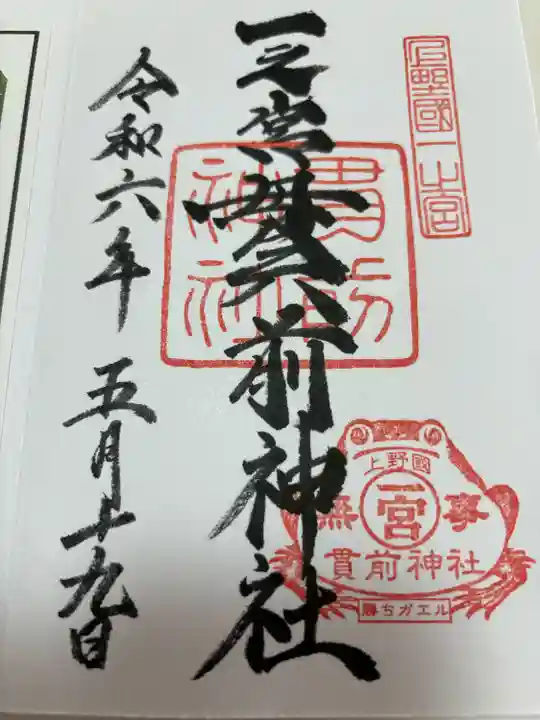 上野國一之宮
一之宮貫前神社
貫前神社
上野國
一宮
無事
貫前神社
勝ちガエル
令和六年 五月十九日